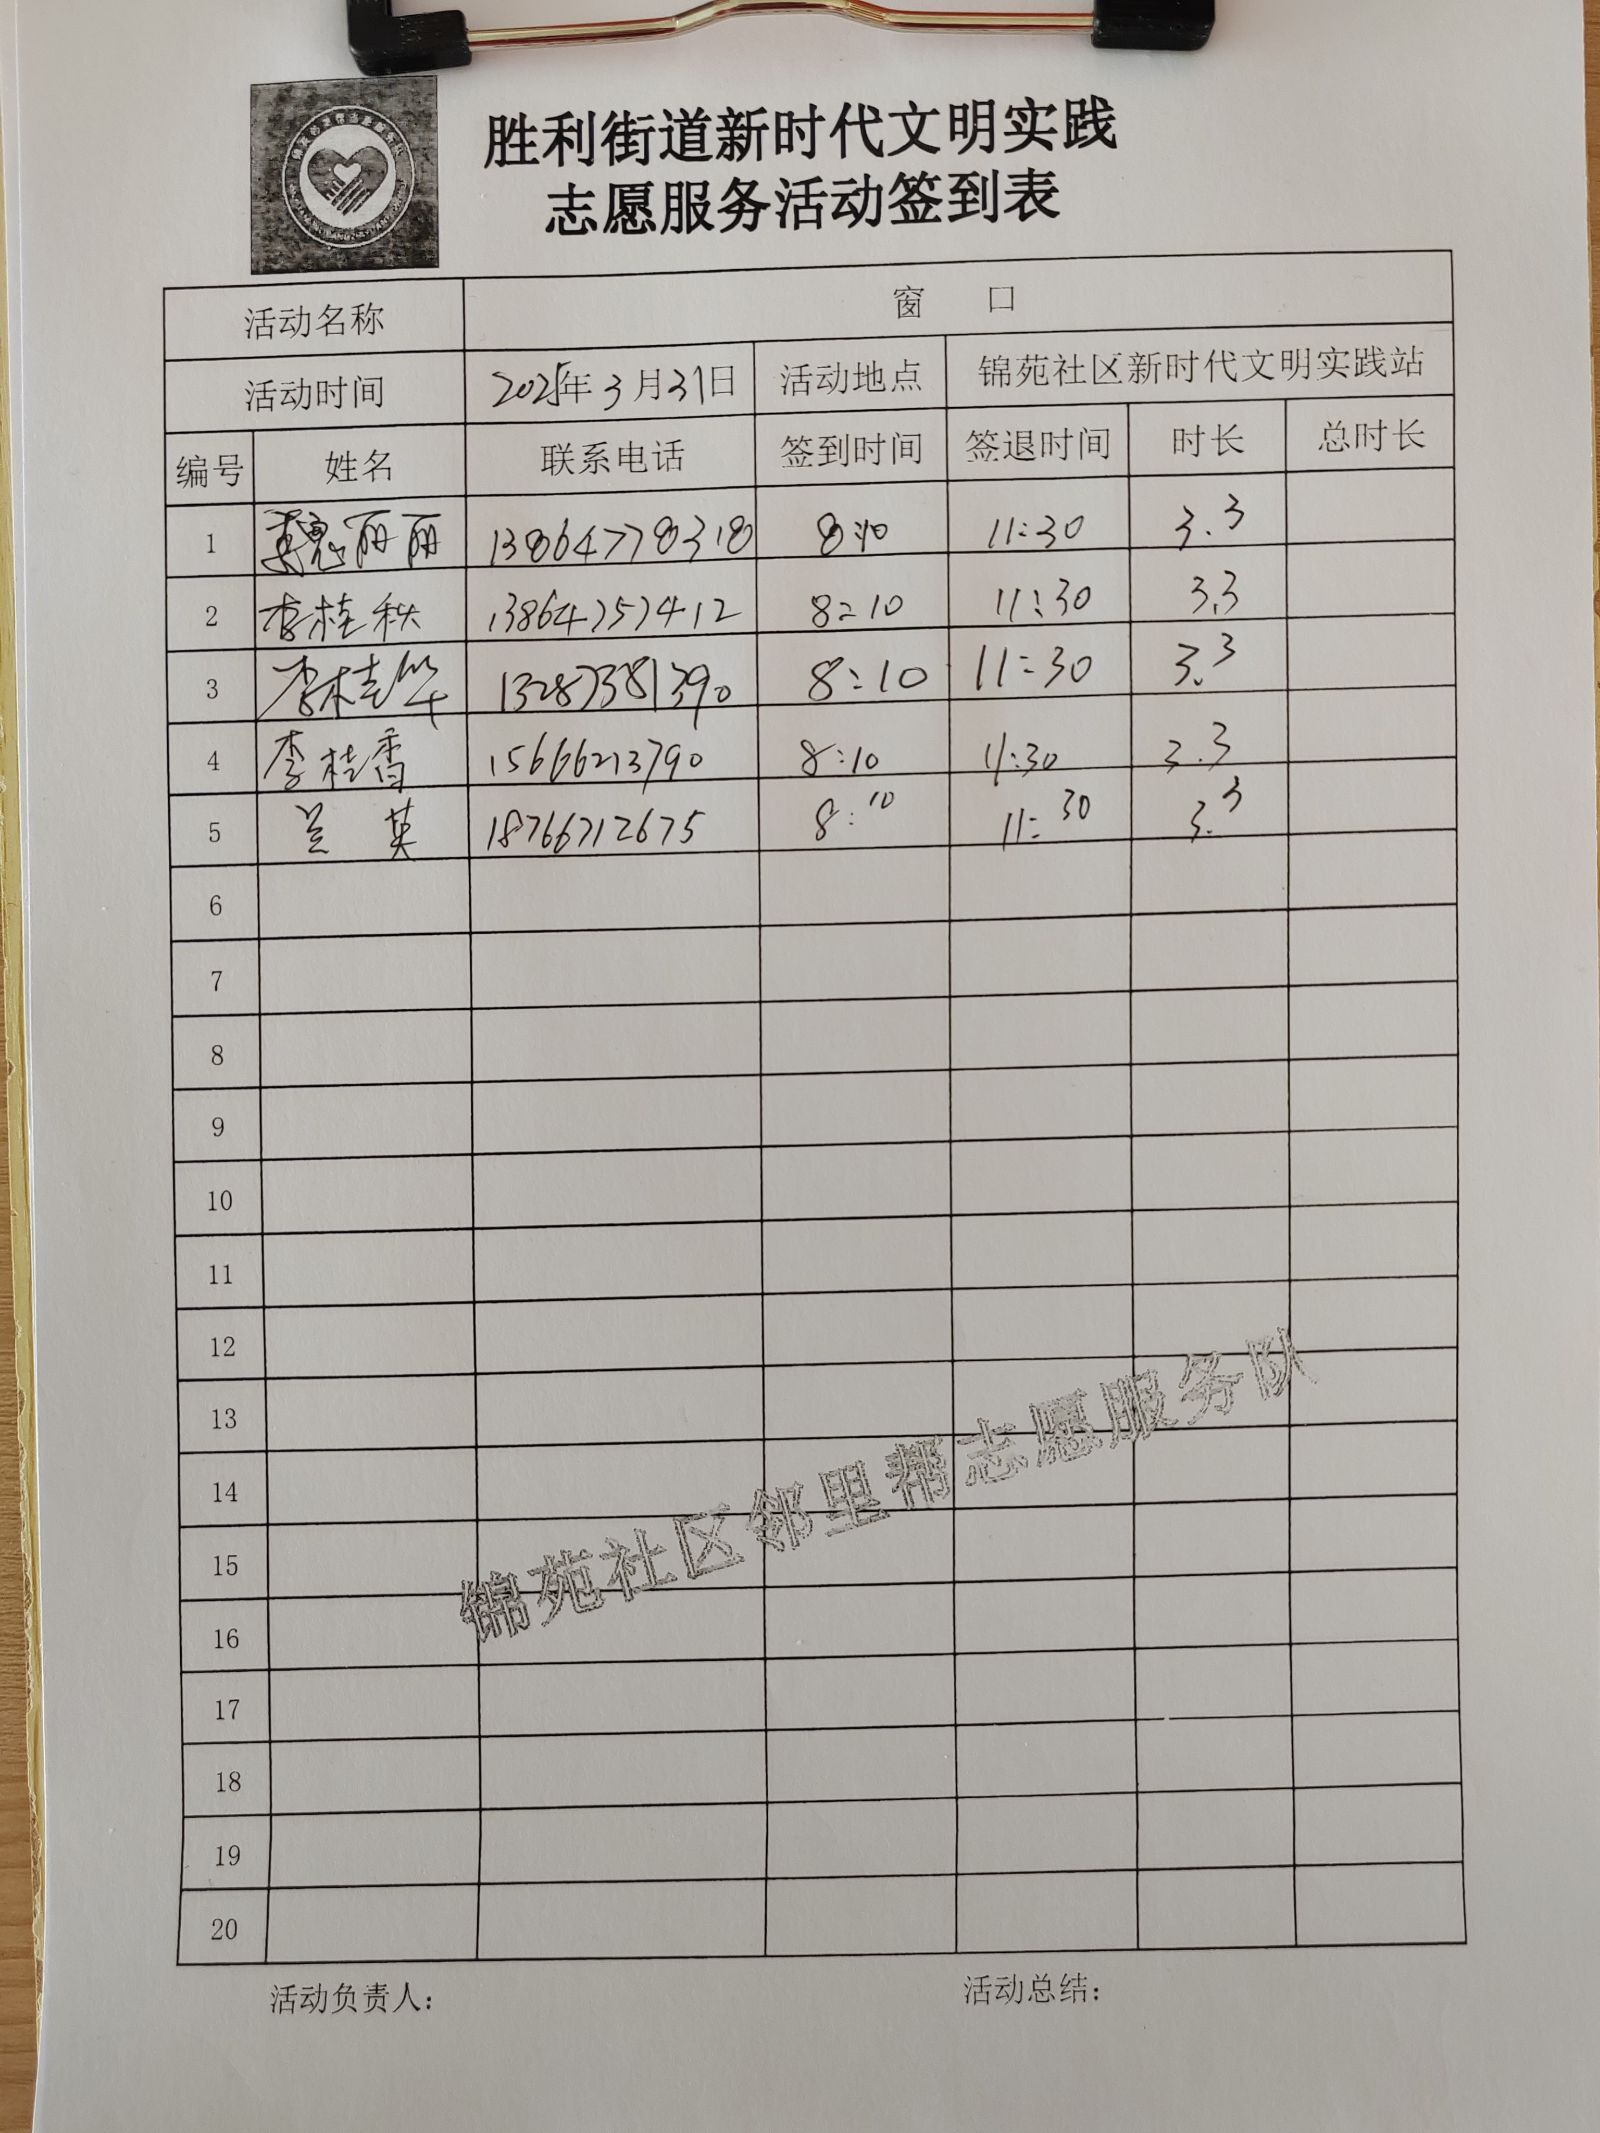 胜利街道新时代文明实践
志愿服务活动签到表
活动名称 窗 口
活动时间 2025年3月31日 活动地点 锦苑社区新时代文明实践站
编号 姓名 联系电话 签到时间 签退时间 时长 总时长
1 魏丽丽 13864778318 8:10 11:30 3.3
2 李桂秋 13864757412 8:10 11:30 3.3
3 李桂华 13287381390 8:10 11:30 3.3
4 李桂香 15666213790 8:10 11:30 3.3
5 兰英 18766712675 8:10 11:30 3.3
6
7
8
9
10
11
12
13
14
15
16
17
18
19
20
锦苑社区邻里帮志愿服务队
活动负责人： 活动总结：